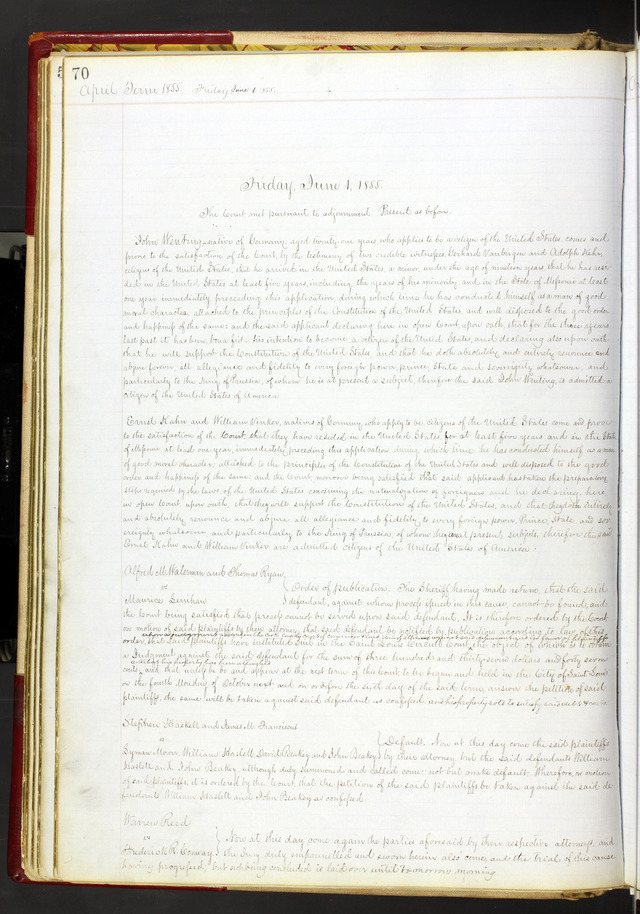 5 70
April Term 1855. Friday June 1, 1855.
Friday, June 1, 1855.
The Court met pursuant to adjournment. Present as before.
John Wenting, a native of Germany, aged twenty one years, who applies to be a citizen of the United States, comes and
proves to the satisfaction of the Court, by the testimony of two credible witnesses and Adolph
citizens of the United States, that he arrived in the United States, a minor, under the age of eighteen years, that he has resi
ded in the United States at least five years, including the years of his minority, and in the State of Missouri at least
one year immediately preceding this application, during which time he has conducted himself as a man of good
moral character, attached to the principles of the Constitution of the United States, and well disposed to the good order
and happiness of the same; and the said applicant declaring here in open Court, upon oath, that for the three years
last past it has been bona fide his intention to become a citizen of the United States, and declaring also upon oath
that he will support the Constitution of the United States, and that he doth absolutely and entirely renounce and
abjure forever, all allegiance and fidelity to every foreign power, prince, State and sovereignty whatsoever, and
particularly to the King of Prussia, of whom he is at present a subject, therefore the said John Wenting is admitted a
citizen of the United States of America.
Ernst Kahn and William Vinker, natives of Germany, who apply to be citizens of the United States come and prove
to the satisfaction of the Court, that they have resided in the United States for at least five years and in the State
of Missouri at least one year, immediately preceding this application during which time he has conducted himself as a man
of good moral character attached to the principles of the Constitution of the United States and well disposed to the good
order and happiness of the same and the Court moreover being satisfied that said applicants has taken the preparatory
steps required by the laws of the United States concerning the naturalization of foreigners, and he declaring here
in open Court, upon oath, that they will support the Constitution of the United States, and that they do entirely
and absolutely renounce and abjure all allegiance and fidelity to every foreign power, Prince, State and sov
ereignty whatsoever and particularly to the King of Prussia, of whom they are at present subjects, therefore the said
Ernst Kahn and William Vinker are admitted citizens of the United States of America.
Alfred M. Waterman and Thomas Ryan,
vs
Maurice Lenihan
Order of publication. The Sheriff having made return, that the said
defendant, against whom process issued in this cause, cannot be found, and
the Court being satisfied that process cannot be served upon said defendant, It is therefore ordered by the Court
on motion of said plaintiffs by their attorney, that said defendant be notified by publication according to law of this
order, that said plaintiffs have instituted suit in the Saint Louis Circuit Court, the object of which is to obtain
a Judgment against the said defendant for the sum of three hundred and thirty-seven dollars and forty seven
and that his property has been attached
cents, and that unless he be and appear at the next term of this Court, to be begun and held in the City of Saint Louis
on the fourth Monday of October next, and on or before the sixth day of the said term, answer the petition of said
plaintiffs, the same will be taken against said defendant as confessed and his property sold to satisfy
Stephen Haskell and James M. Franciscus
vs
Lyman Moor, William Haslett, David Beakey and John Beakey
Default. Now at this day come the said plaintiffs
by their attorney, but the said defendants William
Haslett and John Beakey, although duly summoned and called come not but make default; Wherefore, on motion
of said plaintiffs, it is ordered by the Court that the petition of the said plaintiffs be taken against the said de
fendants William Haslett and John Beakey as confessed.
Warren Reed
vs
Frederick R. Conway
Now at this day come again the parties aforesaid by their respective attorneys, and
the Jury duly empannelled and sworn herein also come, and the trial of this cause
having progressed, but not being concluded is laid over until tomorrow morning